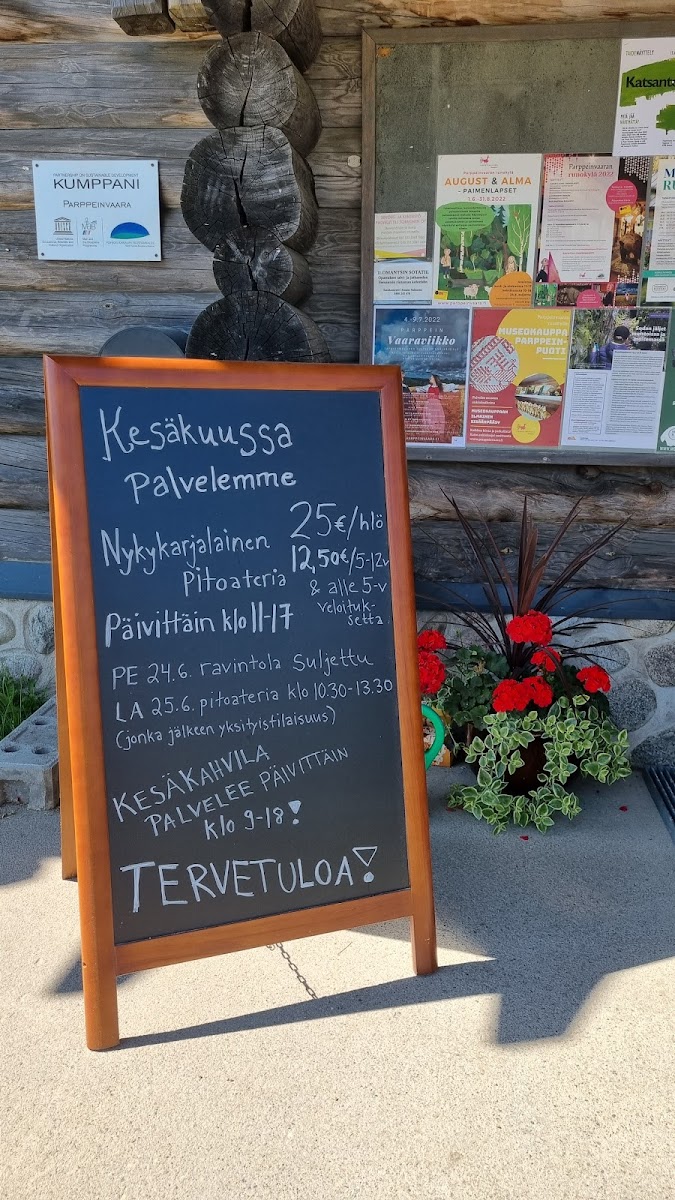 PARTNERSHIP ON SUSTAINABLE DEVELOPMENT
KUMPPANI
PARPPEINVAARA
Katsanta
AUGUST & ALMA
- PAIMENLAPSET
1.6.-31.8.2022
Parppeinvaaran
runokylä 2022
ILOMANTSIN SOTATIE
4.-9.7.2022
PARPPEIN
Vaaraviikko
MUSEOKAUPPA
PARPPEIN-
PUOTI
Kesäkuussa
palvelemme
Nykykarjalainen
Pitoateria
25€/hlö
12,50€/5-12v
& alle 5-v
veloituk-
setta
Päivittäin klo 11-17
PE 24.6. ravintola suljettu
LA 25.6. pitoateria klo 10.30-13.30
(jonka jälkeen yksityistilaisuus)
KESÄKAHVILA
PALVELEE PÄIVITTÄIN
klo 9-18!
TERVETULOA!